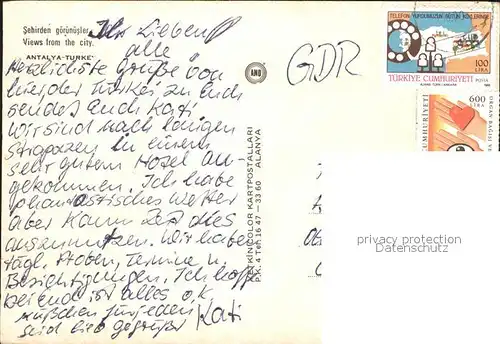 Şehirden görünüşler
Views from the city.
ANTALYA-TURKEY
Ihr Lieben
alle
Herzlichste Grüße von
hier der Türkei zu Euch
sendet Euch Kati
Wir sind nach langen
Strapazen in einem
sehr gutem Hotel an-
gekommen. Ich habe
phantastisches Wetter
aber kaum Zeit dies
auszunutzen. Wir haben
tägl. Proben, Termine u.
Besichtigungen. Ich hoffe
bei Euch ist alles o.k.
Küßchen für jeden
Seid lieb gegrüßt Kati
AND
KESKİN COLOR KARTPOSTALLARI
P.K. 4 Tel: 16 47 — 33 60 ALANYA
GDR
TELEFON YURDUMUZUN BÜTÜN KÖYLERİNDE
100
LIRA
TÜRKİYE CUMHURİYETİ
POSTA
600
LIRA
CUMHURİYETİ
privacy protection
Datenschutz